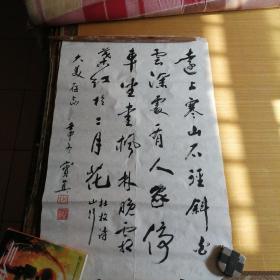 遠上寒山石徑斜白
雲深處有人家停
車坐愛楓林晚霜
葉紅於二月花 杜牧詩
山行